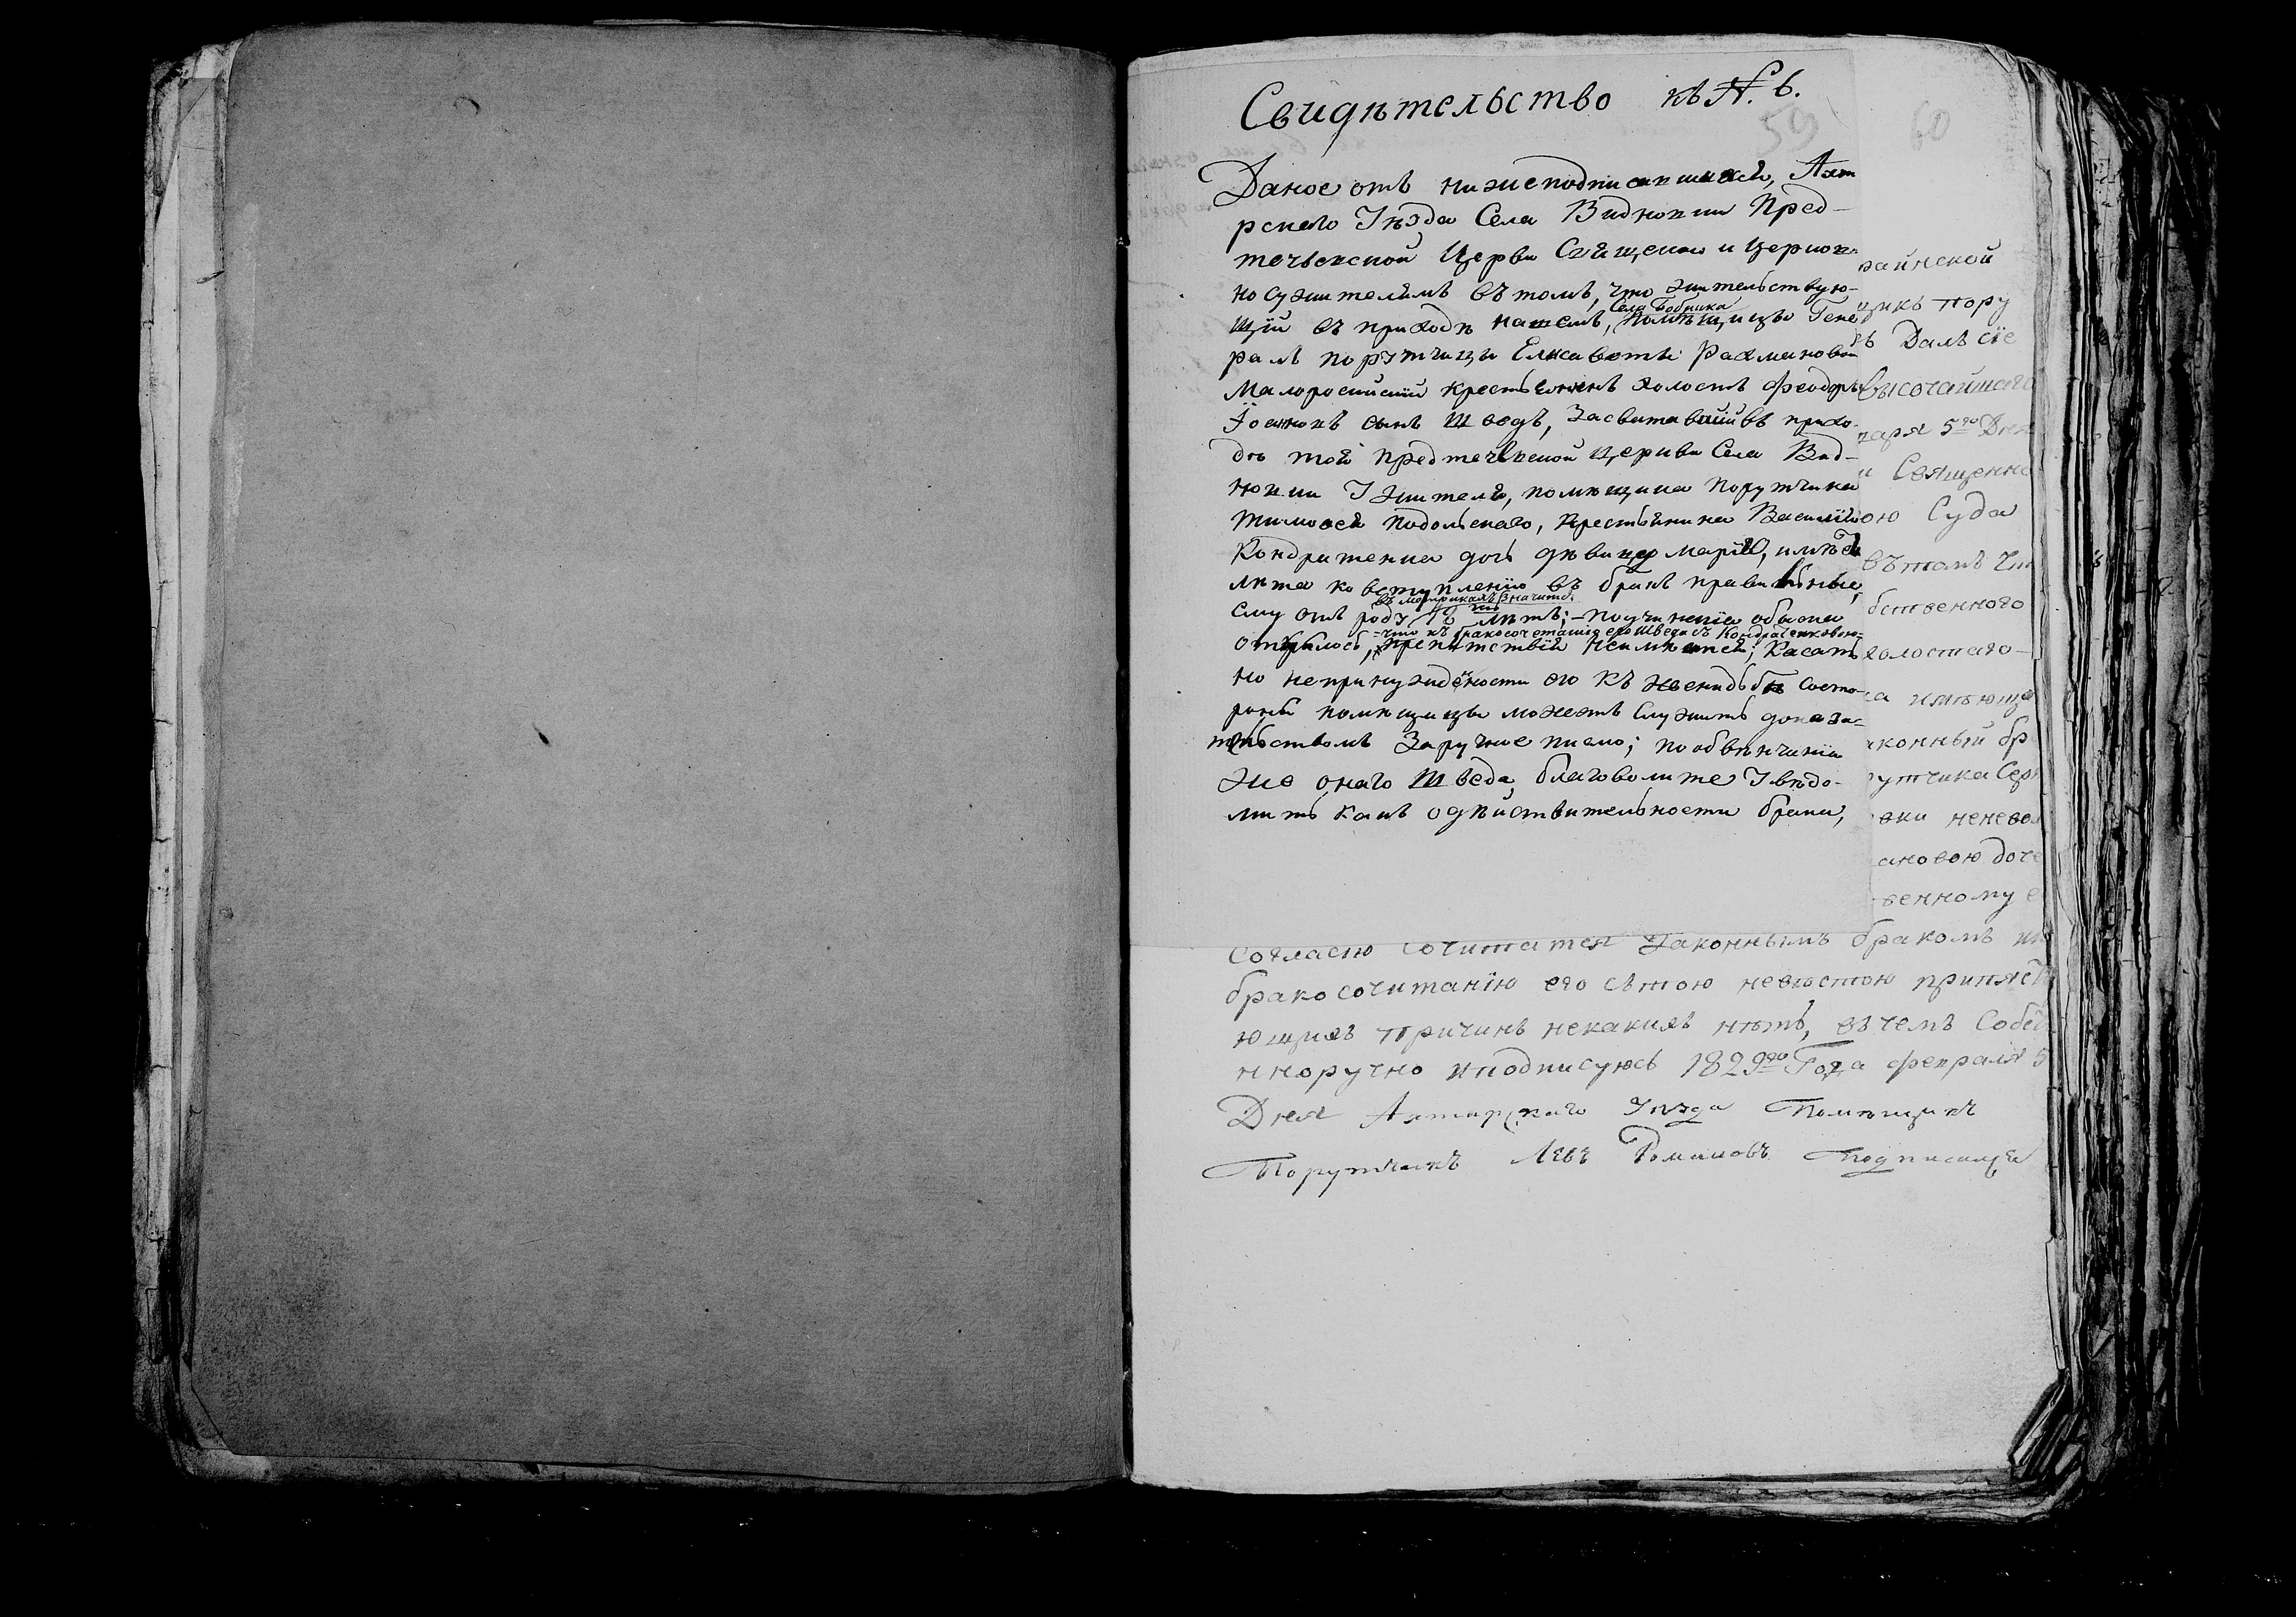 Свидѣтельство къ N. 6.
59
60
Даное отъ нижеподписавшихся, Ахт
рскаго Уѣзда Села Виднювки Пред-
течевской Церви Священо и Церков-
но служителямъ въ томъ, что жительствую-
Села Бобрика
щій въ приходѣ нашемъ, помѣщицы Гене
ралъ порутчицы Елисаветы Рахмановой
Малоросийскій крестьянинъ холостъ Феодоръ
Іоанновъ сынъ Шведъ, Засватавшій въ прихо-
дѣ той предтечевской церкви Села Вид-
нювки Жителя, помѣщика Порутчика
Тимофея Подольскаго, крестьянина Василія
Кондратенка дочь дѣвицу Марію, имѣетъ
лѣта ко вступленію въ бракъ правильные,
въ метрикахъ значитъ.
ему отъ роду 18 лѣтъ; – по учиненіи обыска
что къ бракосочетанію его Шведа съ Кондратенковою
открылось, препятствій неимѣется; Касатель
но непринужденности его къ женидьбѣ состо-
роны помѣщицы можетъ служить доказа-
тельствомъ Заручное писмо; по обвѣнчаніи
же онаго Шведа, благоволите Увѣдо-
мить насъ одѣйствительности брака,
раинской
щикъ пору
ъ Далъ сіе
высочайшаго
наря 5го Дня
и Священно
ою Суда
въ томъ Что
бственного
холостаго
ка имѣюще
конный бр
рутчика Сер
вки ненево
ановою доче
венному е
Согласію Сочитатся Законнымъ бракомъ и к
бракосочитанію его сътою невѣстою припятств
ющихъ причинъ некакихъ нѣтъ, въ чемъ Собст
нноручно и подписуюсь 1829го Года февраля 5
Дня Ахтырскаго Уѣзда Помѣщикъ
Порутчикъ Левъ Романовъ подписался